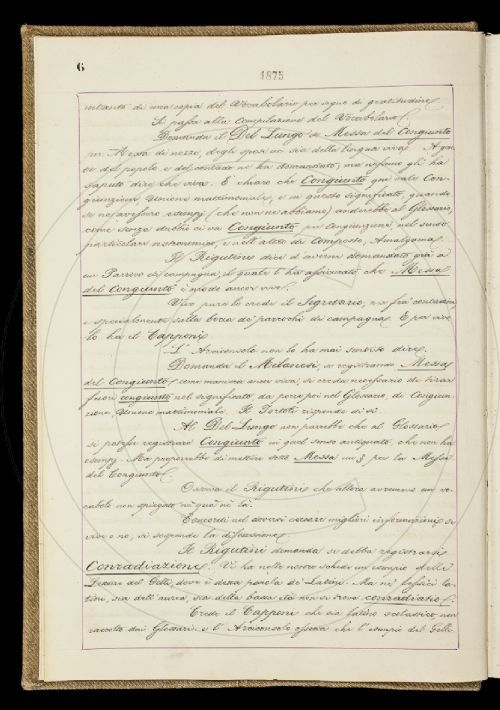 6
1875
mitante di una copia del Vocabolario per segno di gratitudine.
Si passa alla compilazione del Vocabolario.
Domanda il Del Lungo se Messa del Congiunto
per Messa di nozze, degli sposi sia della lingua viva. A gen
te del popolo e del contado ne ha domandato, ma nessuno gli ha
saputo dire che viva. È chiaro che Congiunto qui vale Con
giunzione, Unione matrimoniale, e in questo significato, quando
se ne avessero esempj (che non ne abbiamo) andrebbe al Glossario,
come senza dubbio ci va Congiunto per Congiunzione nel senso
particolare astronomico, e nell'altro di Composto, Amalgama.
Il Rigutini dice d'averne domandato già a
un Parroco di campagna, il quale l'ha assicurato che Messa
del Congiunto è modo ancor vivo.
Vivo pure lo crede il Segretario, ma fra contadini
e specialmente sulla bocca de' parrochi di campagna. E per vivo
lo ha il Capponi.
L'Arciconsolo non lo ha mai sentito dire.
Domanda il Milanesi, se registrando Messa
del Congiunto come maniera ancor viva, si creda necessario di tirar
fuori congiunto nel significato da porsi poi nel Glossario, di Congiun
zione, Unione matrimoniale. Il Tortoli risponde di sì.
Al Del Lungo non parrebbe che al Glossario
si potesse registrare Congiunto in quel senso antiquato, che non ha
esempj. Ma proporrebbe di mettere sotto Messa un § per la Messa
del Congiunto.
Osserva il Rigutini che allora avremmo un vo-
cabolo non spiegato nè qua nè là.
Concordi nel doversi cercare migliori informazioni se
vive o no, si sospende la discussione.
Il Rigutini domanda se debba registrarsi
Conradiazione. Vi ha nelle nostre schede un esempio delle
Letture del Gelli, dove è detta parola de' Latini. Ma ne' lessici la-
tini, sia dell'aurea, sia della bassa età non si trova conradiatio.
Crede il Capponi che sia latino scolastico, non
raccolto dai Glossari: e l'Arciconsolo osserva che l'esempio del Gelli